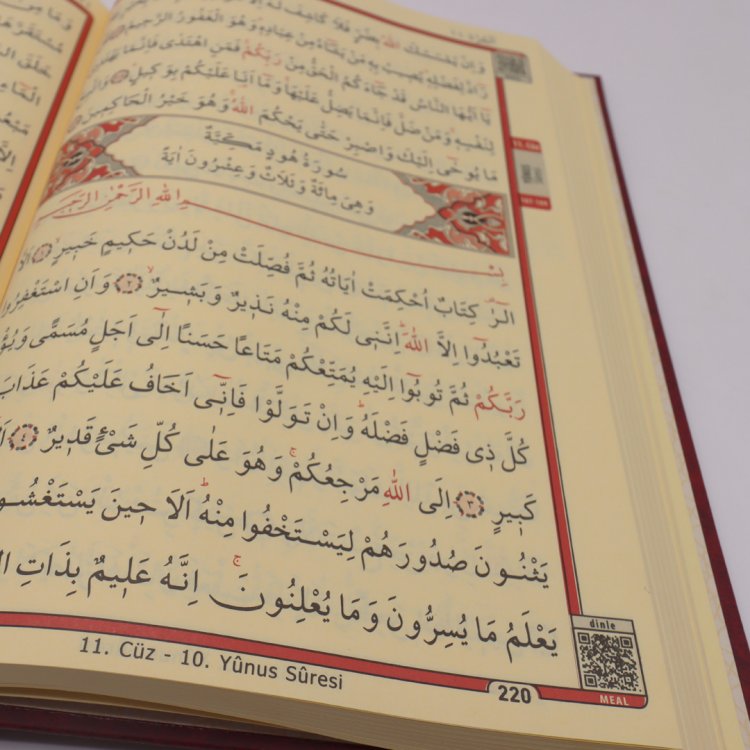 وَاِنْ يَمْسَسْكَ اللّٰهُ بِضُرٍّ فَلَا كَاشِفَ لَهُٓ اِلَّا
رَٓادَّ لِفَضْلِهٖ يُصٖيبُ بِهٖ مَنْ يَشَٓاءُ مِنْ عِبَادِهٖ وَهُوَ الْغَفُورُ الرَّحٖيمُ
يَٓا اَيُّهَا النَّاسُ قَدْ جَٓاءَكُمُ الْحَقُّ مِنْ رَبِّكُمْ فَمَنِ اهْتَدٰى فَاِنَّمَا يَهْتَدٖي
لِنَفْسِهٖ وَمَنْ ضَلَّ فَاِنَّمَا يَضِلُّ عَلَيْهَا وَمَٓا اَنَا۬ عَلَيْكُمْ بِوَكٖيلٍ
مَا يُوحٰٓى اِلَيْكَ وَاصْبِرْ حَتّٰى يَحْكُمَ اللّٰهُ وَهُوَ خَيْرُ الْحَاكِمٖينَ
سُورَةُ هُودٍ مَكِّيَّةٌ
وَهِىَ مِائَةٌ وَثَلَاثٌ وَعِشْرُونَ اٰيَةً
بِسْمِ اللّٰهِ الرَّحْمٰنِ الرَّحٖيمِ
الٓرٰ كِتَابٌ اُحْكِمَتْ اٰيَاتُهُ ثُمَّ فُصِّلَتْ مِنْ لَدُنْ حَكٖيمٍ خَبٖيرٍ ﴿١﴾ اَلَّا
تَعْبُدُٓوا اِلَّا اللّٰهَ اِنَّنٖى لَكُمْ مِنْهُ نَذٖيرٌ وَبَشٖيرٌ ﴿٢﴾ وَاَنِ اسْتَغْفِرُوا
رَبَّكُمْ ثُمَّ تُوبُٓوا اِلَيْهِ يُمَتِّعْكُمْ مَتَاعًا حَسَنًا اِلٰٓى اَجَلٍ مُسَمًّى وَيُؤْتِ
كُلَّ ذٖى فَضْلٍ فَضْلَهُ وَاِنْ تَوَلَّوْا فَاِنّٖٓى اَخَافُ عَلَيْكُمْ عَذَابَ
كَبٖيرٍ ﴿٣﴾ اِلَى اللّٰهِ مَرْجِعُكُمْ وَهُوَ عَلٰى كُلِّ شَیْءٍ قَدٖيرٌ ﴿٤﴾
يَثْنُونَ صُدُورَهُمْ لِيَسْتَخْفُوا مِنْهُ اَلَا حٖينَ يَسْتَغْشُونَ
يَعْلَمُ مَا يُسِرُّونَ وَمَا يُعْلِنُونَ اِنَّهُ عَلٖيمٌ بِذَاتِ
dinle
MEAL
11. Cüz - 10. Yûnus Sûresi
220